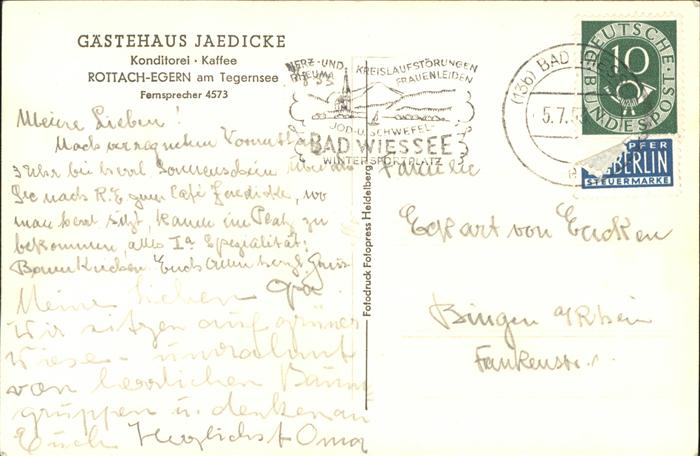 GÄSTEHAUS JAEDICKE
Konditorei · Kaffee
ROTTACH-EGERN am Tegernsee
Fernsprecher 4573
Meine Lieben!
Nach verregnetem Vormittag
3 Uhr bei herrl. Sonnenschein über den
See nach R.E. zum Café Jaedicke, wo
man herrl. sitzt, kaum im Platz zu
bekommen, alles Ia Spezialität:
Baumkuchen. Euch Allen herzl. Gruss
Opa
Meine Lieben
Wir sitzen auf grüner
Wiese umrahmt
von herrlichen Baum
gruppen u. denken an
Euch Herzlichst Oma
Fotodruck Fotopress Heidelberg
HERZ- UND
RHEUMA
KREISLAUFSTÖRUNGEN
FRAUENLEIDEN
JOD-U. SCHWEFEL-
BAD WIESSEE
WINTERSPORTPLATZ
(13b) BAD
5.7.5
DEUTSCHE
BUNDESPOST
10
BERLIN
STEUERMARKE
Familie
Eckart von Eicken
Bingen a/Rhein
Frankenstr.